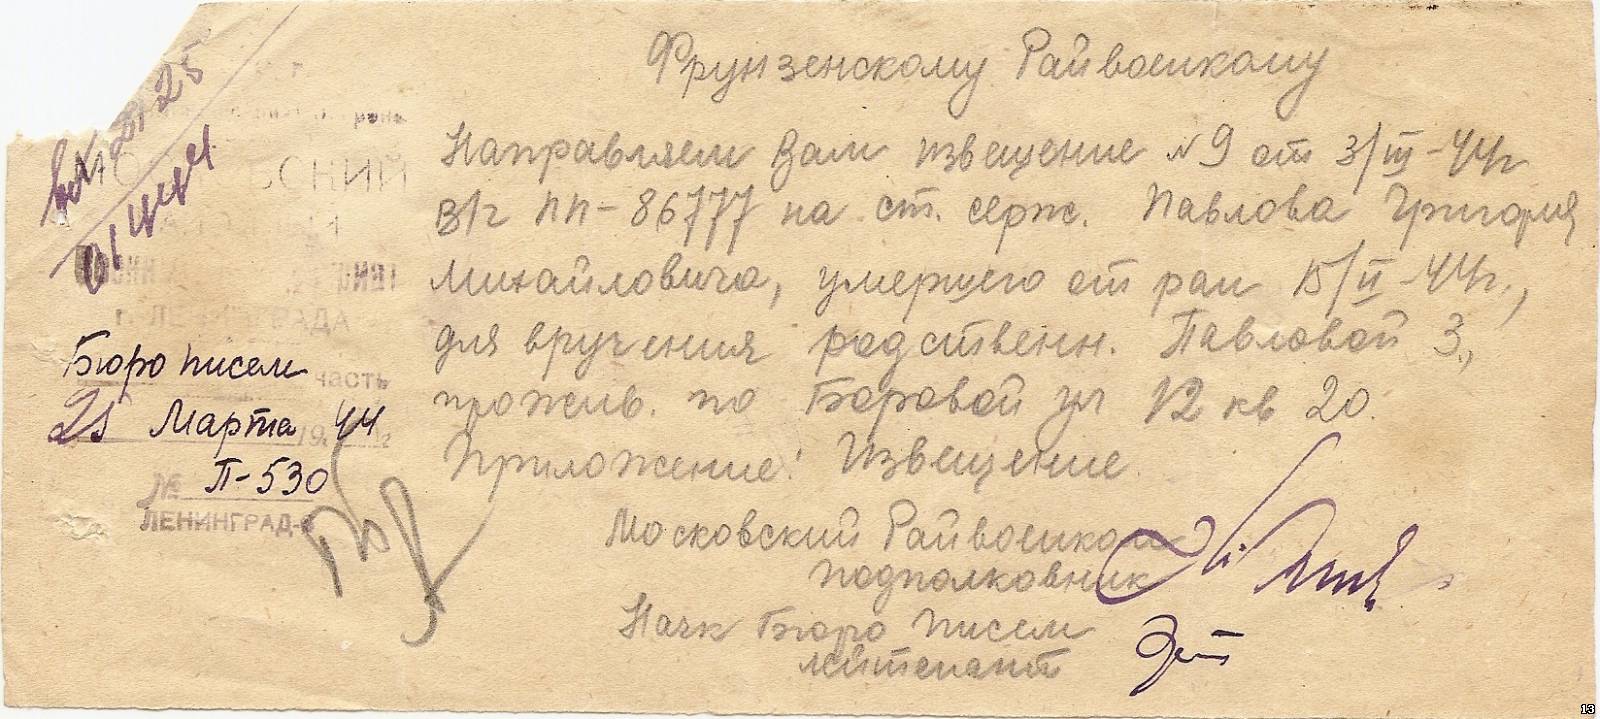 Фрунзенскому Райвоенкому
Направляем Вам извещение №9 от 3/III-44г
в/ч пп-86777 на ст. серж. Павлова Григория
Михайловича, умершего от ран 15/II-44г.,
для вручения родственн. Павловой З.,
прожив. по Боровой ул 12 кв 20.
Приложение: Извещение.
Московский Райвоенком
подполковник
Начк Бюро писем
лейтенант
МОСКОВСКИЙ
г. ЛЕНИНГРАДА
Бюро писем
часть
25 Марта 1944
№ П-530
ЛЕНИНГРАД
13